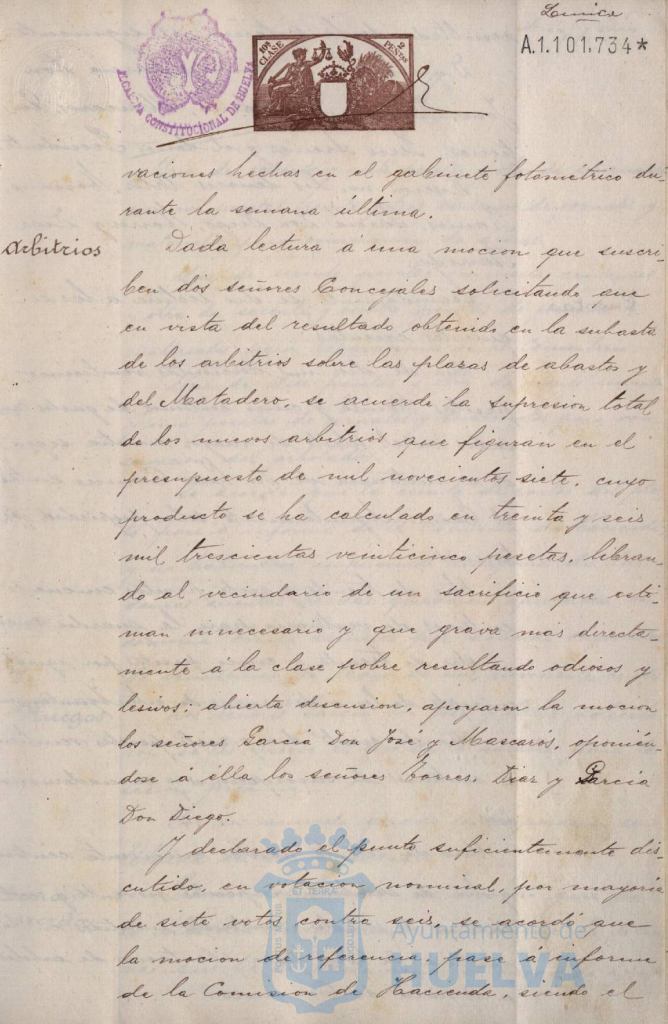 A.1.101.734*
10ª CLASE
2 PESETAS
ALCALDIA CONSTITUCIONAL DE HUELVA
vaciones hechas en el gabinete fotométrico du-
rante la semana última.
Arbitrios
Dada lectura á una mocion que suscri-
ben dos señores Concejales solicitando que
en vista del resultado obtenido en la subasta
de los arbitrios sobre las plazas de abastos y
del Matadero, se acuerde la supresion total
de los nuevos arbitrios que figuran en el
presupuesto de mil novecientos siete, cuyo
producto se ha calculado en treinta y seis
mil trescientas veinticinco pesetas, libran-
do al vecindario de un sacrificio que esti-
man innecesario y que grava mas directa-
mente á la clase pobre resultando odiosos y
lesivos; abierta discusion, apoyaron la mocion
los señores Garcia Don José y Mascarós, oponién-
dose á ella los señores Torres, Diaz y Garcia
Don Diego.
Y declarado el punto suficientemente dis-
cutido, en votacion nominal, por mayoria
de siete votos contra seis, se acordó que
la mocion de referencia, pase á informe
de la Comision de Hacienda, siendo el
Ayuntamiento de
HUELVA